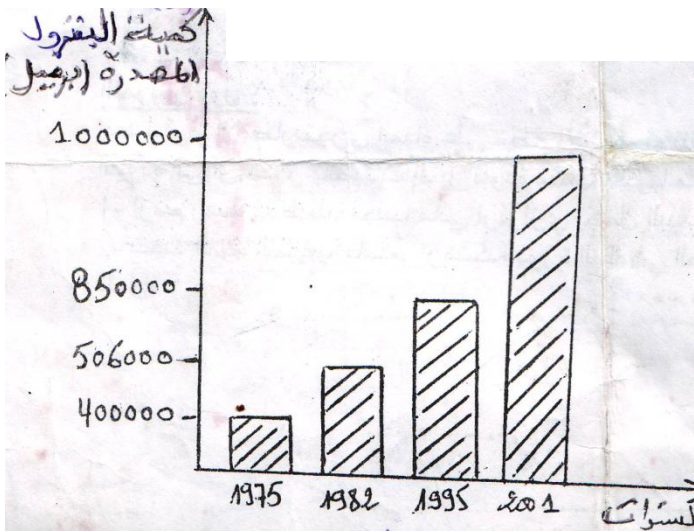 كمية البترول
المصدرة (برميل)
1000000
850000
506000
400000
1975 1982 1995 2001
السنوات